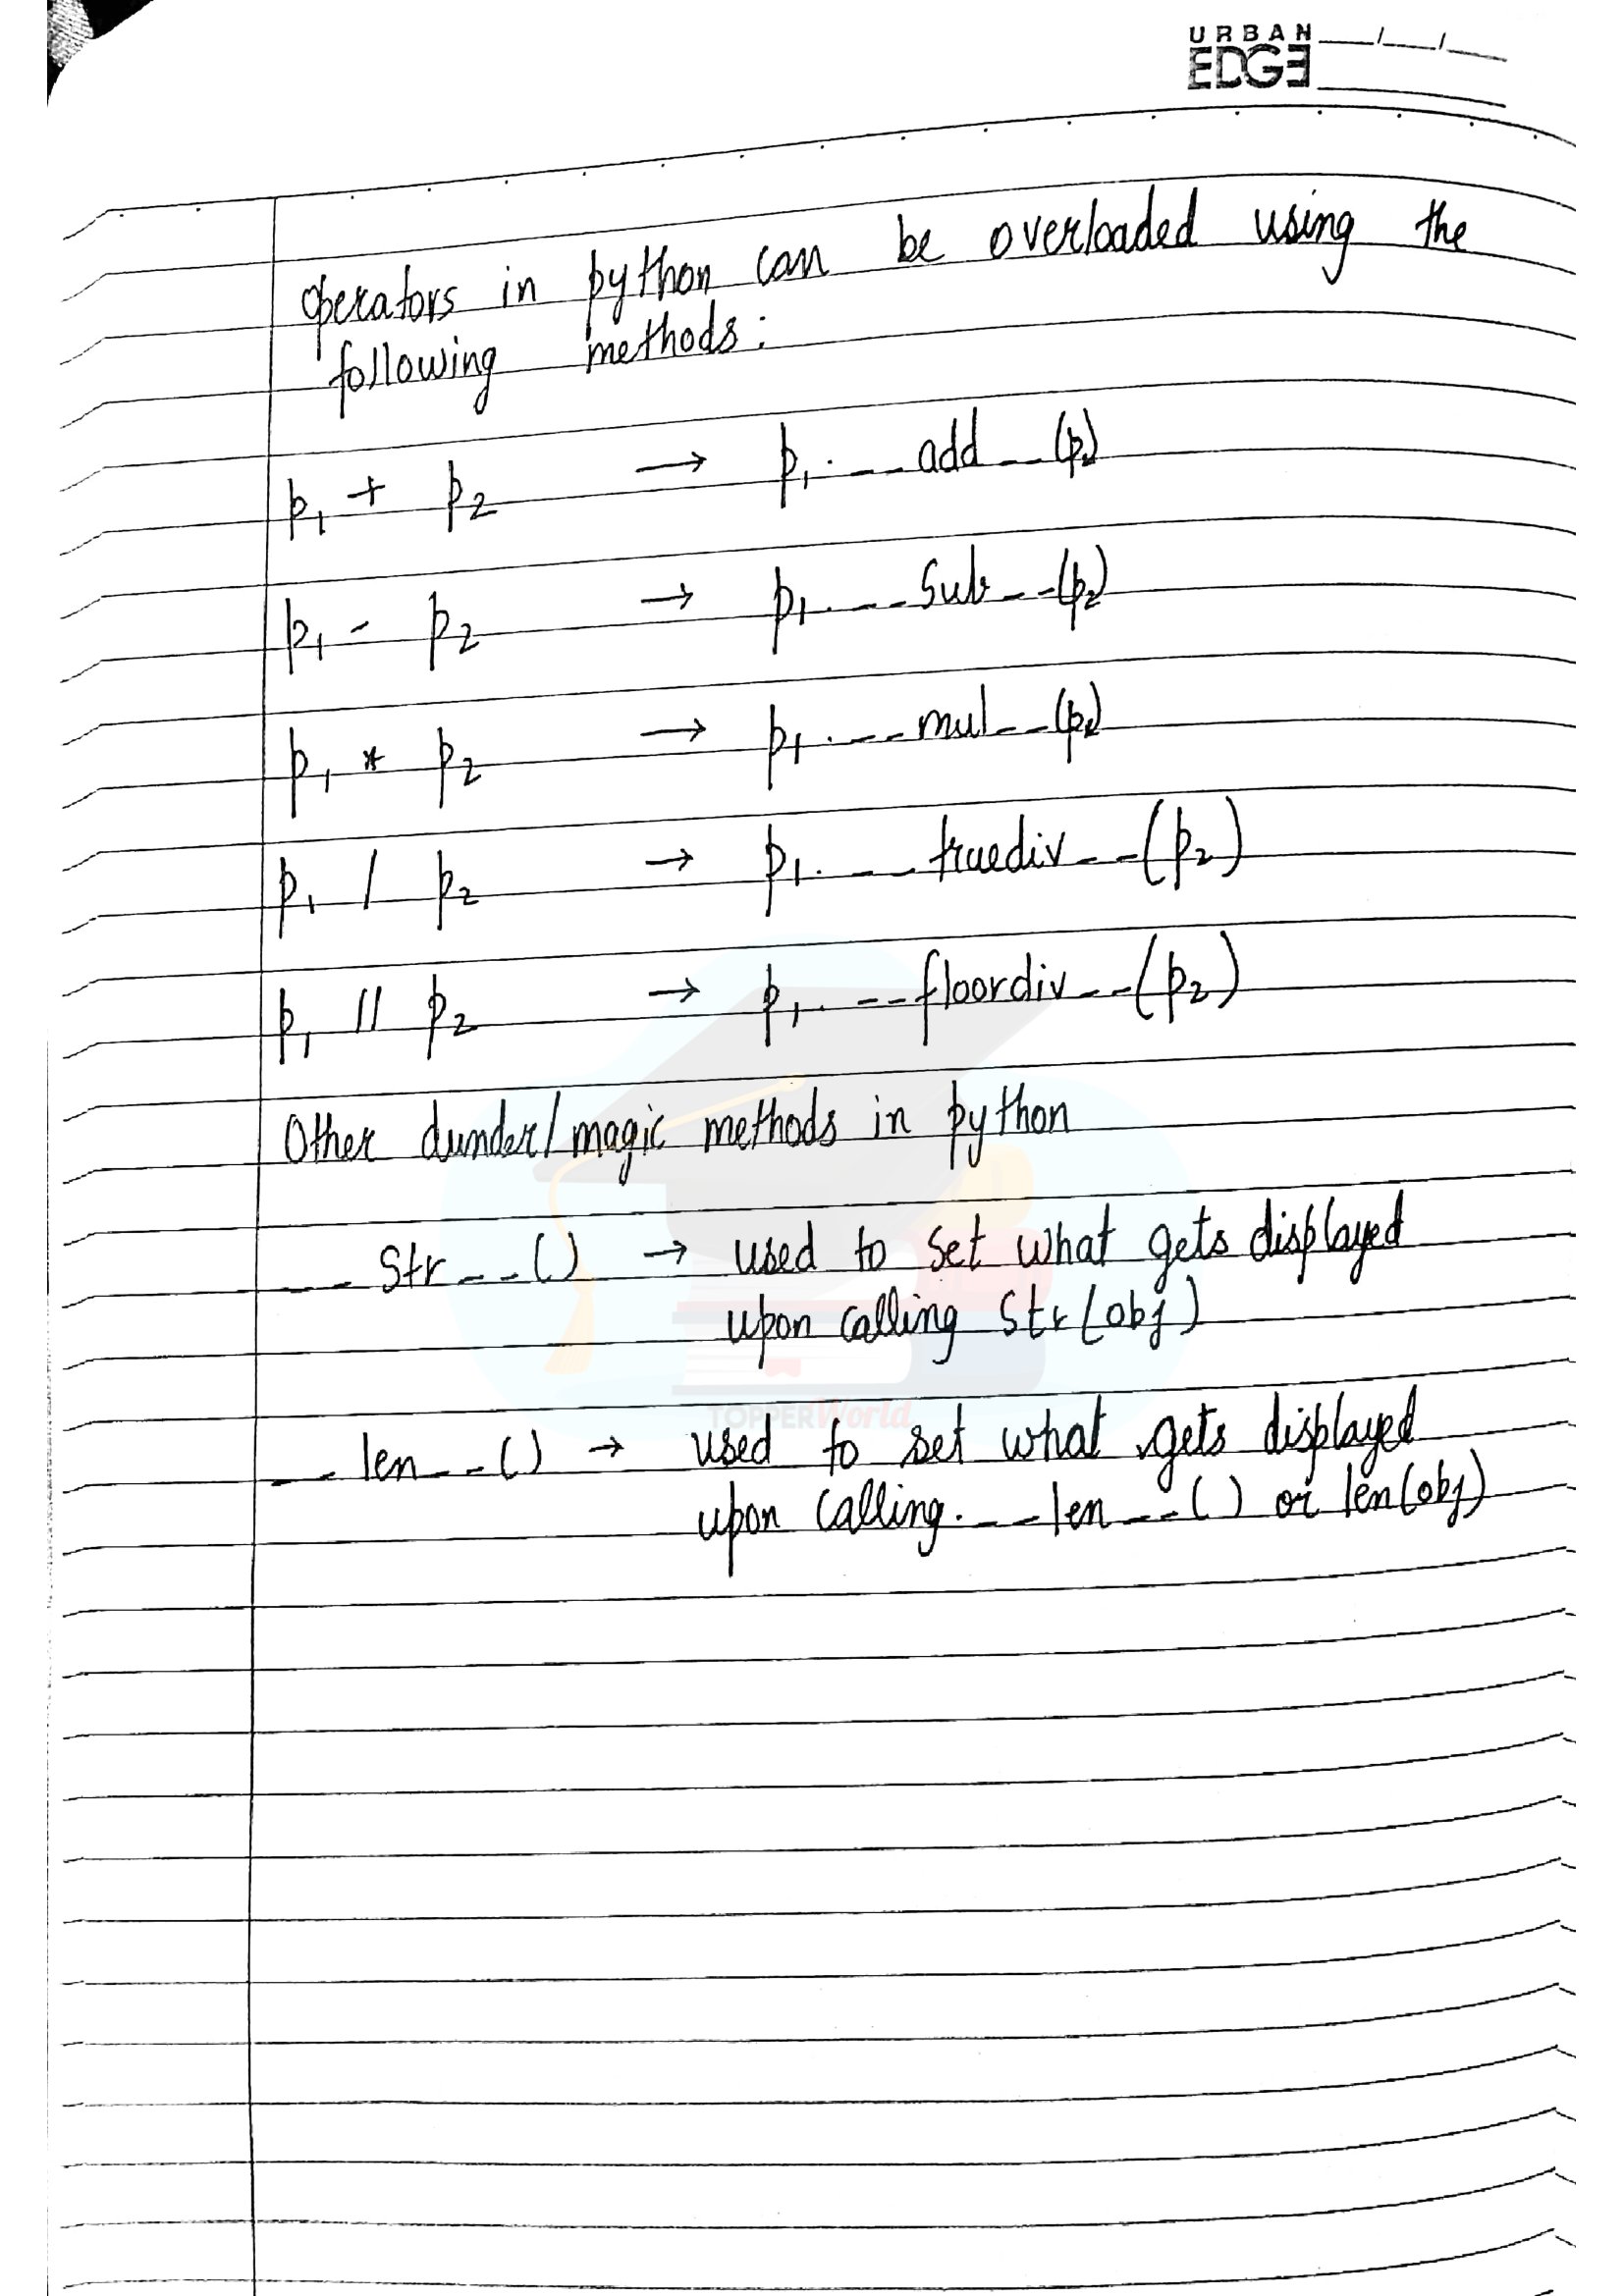 URBAN
EDGE
operators in python can be overloaded using the
following methods:
p1 + p2 → p1.__add__(p2)
p1 - p2 → p1.__sub__(p2)
p1 * p2 → p1.__mul__(p2)
p1 / p2 → p1.__truediv__(p2)
p1 // p2 → p1.__floordiv__(p2)
Other dunder/magic methods in python
__str__() → used to set what gets displayed
upon calling str(obj)
TOPPERWorld
__len__() → used to set what gets displayed
upon calling.__len__() or len(obj)